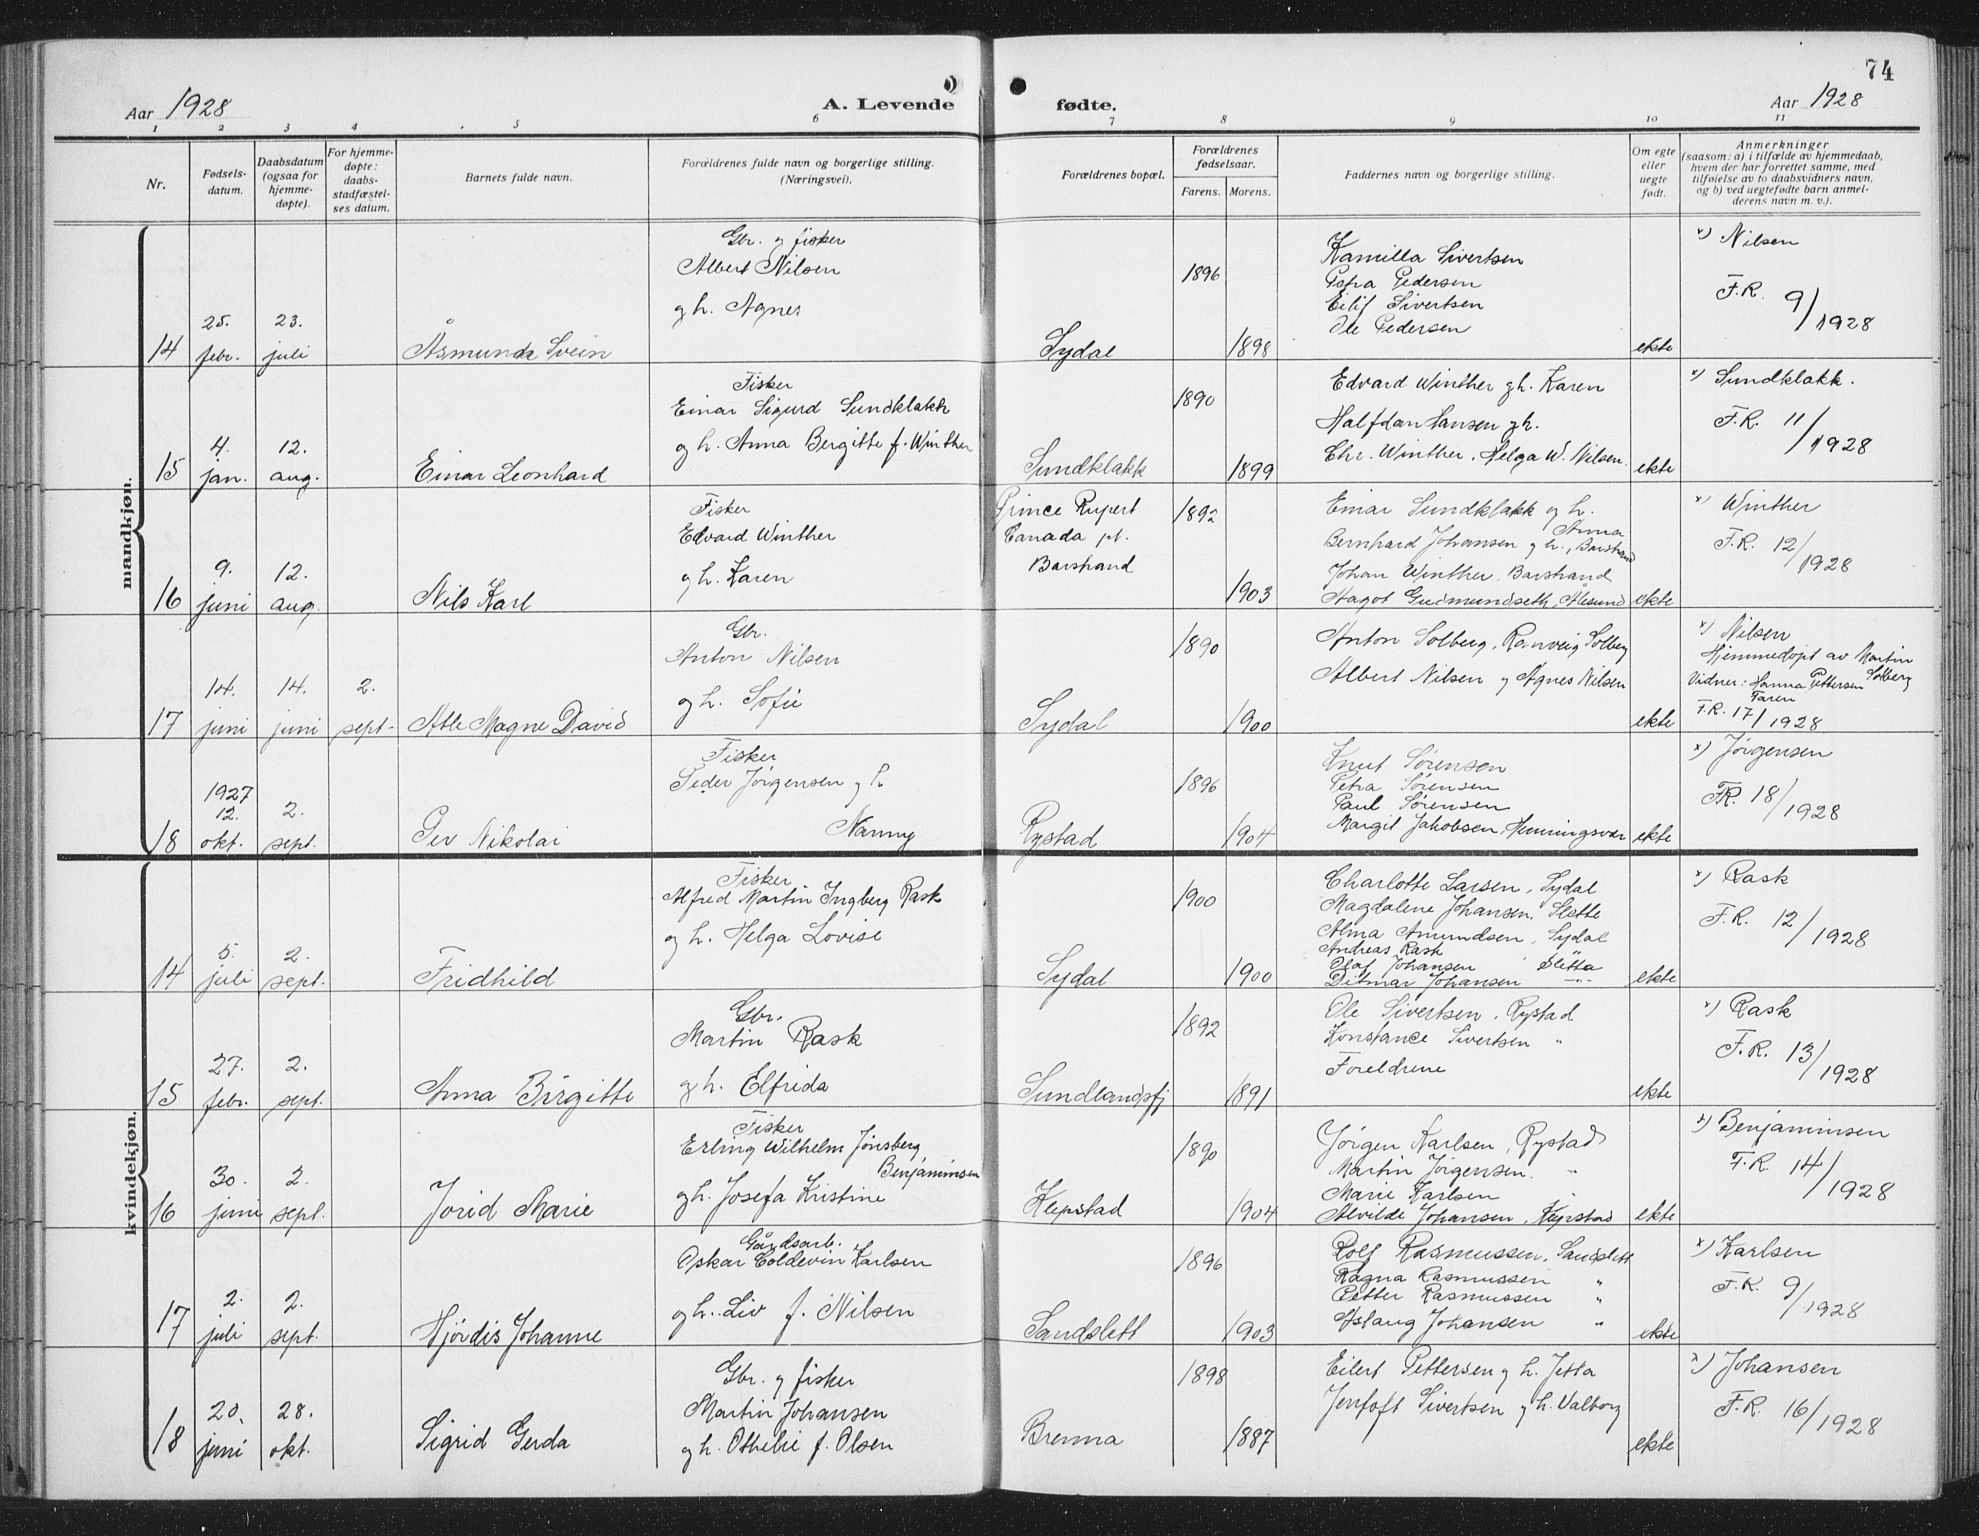 74
Aar 1928
A. Levende fødte.
Aar 1928
1 2 3 4 5 6 7 8 9 10 11
Nr.
Fødsels-
datum.
Daabsdatum
(ogsaa for
hjemme-
døpte).
For hjemme-
døpte:
daabs-
stadfæstel-
ses datum.
Barnets fulde navn.
Forældrenes fulde navn og borgerlige stilling.
(Næringsvei).
Forældrenes bopæl.
Forældrenes
fødselsaar.
Farens. Morens.
Faddernes navn og borgerlige stilling.
Om egte
eller
uegte
født.
Anmerkninger
(saasom: a) i tilfælde av hjemmedaab,
hvem der har forrettet samme, med
tilføielse av to daabsvidners navn,
og b) ved uegtefødte barn anmel-
derens navn m. v.).
mandkjøn.
14
25.
febr.
23.
juli
Åsmund Svein
Gbr. og fisker
Albert Nilsen
og h. Agnes
Sydal
1896
1898
Kamilla Sivertsen
Petra Pedersen
Eilif Sivertsen
Ole Pedersen
ekte
x) Nilsen
F.R. 9/1928
15
4.
jan.
12.
aug.
Einar Leonhard
Fisker
Einar Sigurd Sundklakk
og h. Anna Bergitte f. Winther
Sundklakk
1890
1899
Edvard Winther og h. Karen
Halfdan Hansen og h.
Chr. Winther, Helga W. Nilsen.
ekte
x) Sundklakk.
F.R. 11/1928
16
9.
juni
12.
aug.
Nils Karl
Fisker
Edvard Winther
og h. Karen
Prince Rupert
Canada pt.
Barstrand
1892
1903
Einar Sundklakk og h.
Anna
Bernhard Johansen og h., Barstrand
Johan Winther, Barstrand
Aagot Gudmundseth, Ålesund
ekte
x) Winther
F.R. 12/1928
17
14.
juni
14.
juni
2.
sept.
Atle Magne David
Gbr.
Anton Nilsen
og h. Sofie
Sydal
1890
1900
Anton Solberg, Ranveig Solberg
Albert Nilsen og Agnes Nilsen
ekte
x) Nilsen
Hjemmedøpt av Martin
Solberg
Vidner: Hanna Pettersen
Faren
F.R. 17/1928
18
1927
12.
okt.
2.
sept.
Per Nikolai
Fisker
Peder Jørgensen og h.
Nanny
Rystad
1896
1904
Knut Sørensen
Petra Sørensen
Paul Sørensen
Margit Jakobsen, Henningsvær
ekte
x) Jørgensen
F.R. 18/1928
kvindekjøn.
14
5.
juli
2.
sept.
Fridhild
Fisker
Alfred Martin Ingberg Rask
og h. Helga Lovise
Sydal
1900
1900
Charlotte Larsen, Sydal
Magdalene Johansen, Slette
Alma Amundsen, Sydal
Andreas Rask
Olaf Johansen Sletta
Ditmar Johansen -"-
ekte
x) Rask
F.R. 12/1928
15
27.
febr.
2.
sept.
Anna Birgitte
Gbr.
Martin Rask
og h. Elfrida
Sundlandsfj
1892
1891
Ole Sivertsen, Rystad
Konstance Sivertsen "
Foreldrene
ekte
x) Rask
F.R. 13/1928
16
30.
juni
2.
sept.
Jorid Marie
Fisker
Erling Wilhelm Jønsberg
Benjaminsen
og h. Josefa Kristine
Klepstad
1890
1904
Jørgen Karlsen, Rystad
Martin Jørgensen. "
Marie Karlsen
Alvilde Johansen, Klepstad
ekte
x) Benjaminsen
F.R. 14/1928
17
2.
juli
2.
sept.
Hjördis Johanne
Gårdsarb.
Oskar Coldevin Karlsen
og h. Liv f. Nilsen
Sandslett
1896
1903
Rolf Rasmussen, Sandslett
Ragna Rasmussen "
Petter Rasmussen "
Aslaug Johansen "
ekte
x) Karlsen
F.R. 9/1928
18
20.
juni
28.
okt.
Sigrid Gerda
Gbr. og fisker
Martin Johansen
og h. Othelie f. Olsen
Brenna
1898
1887
Eilert Pettersen og h. Jetta
Jentoft Sivertsen og h. Valborg
ekte
x) Johansen
F.R. 16/1928